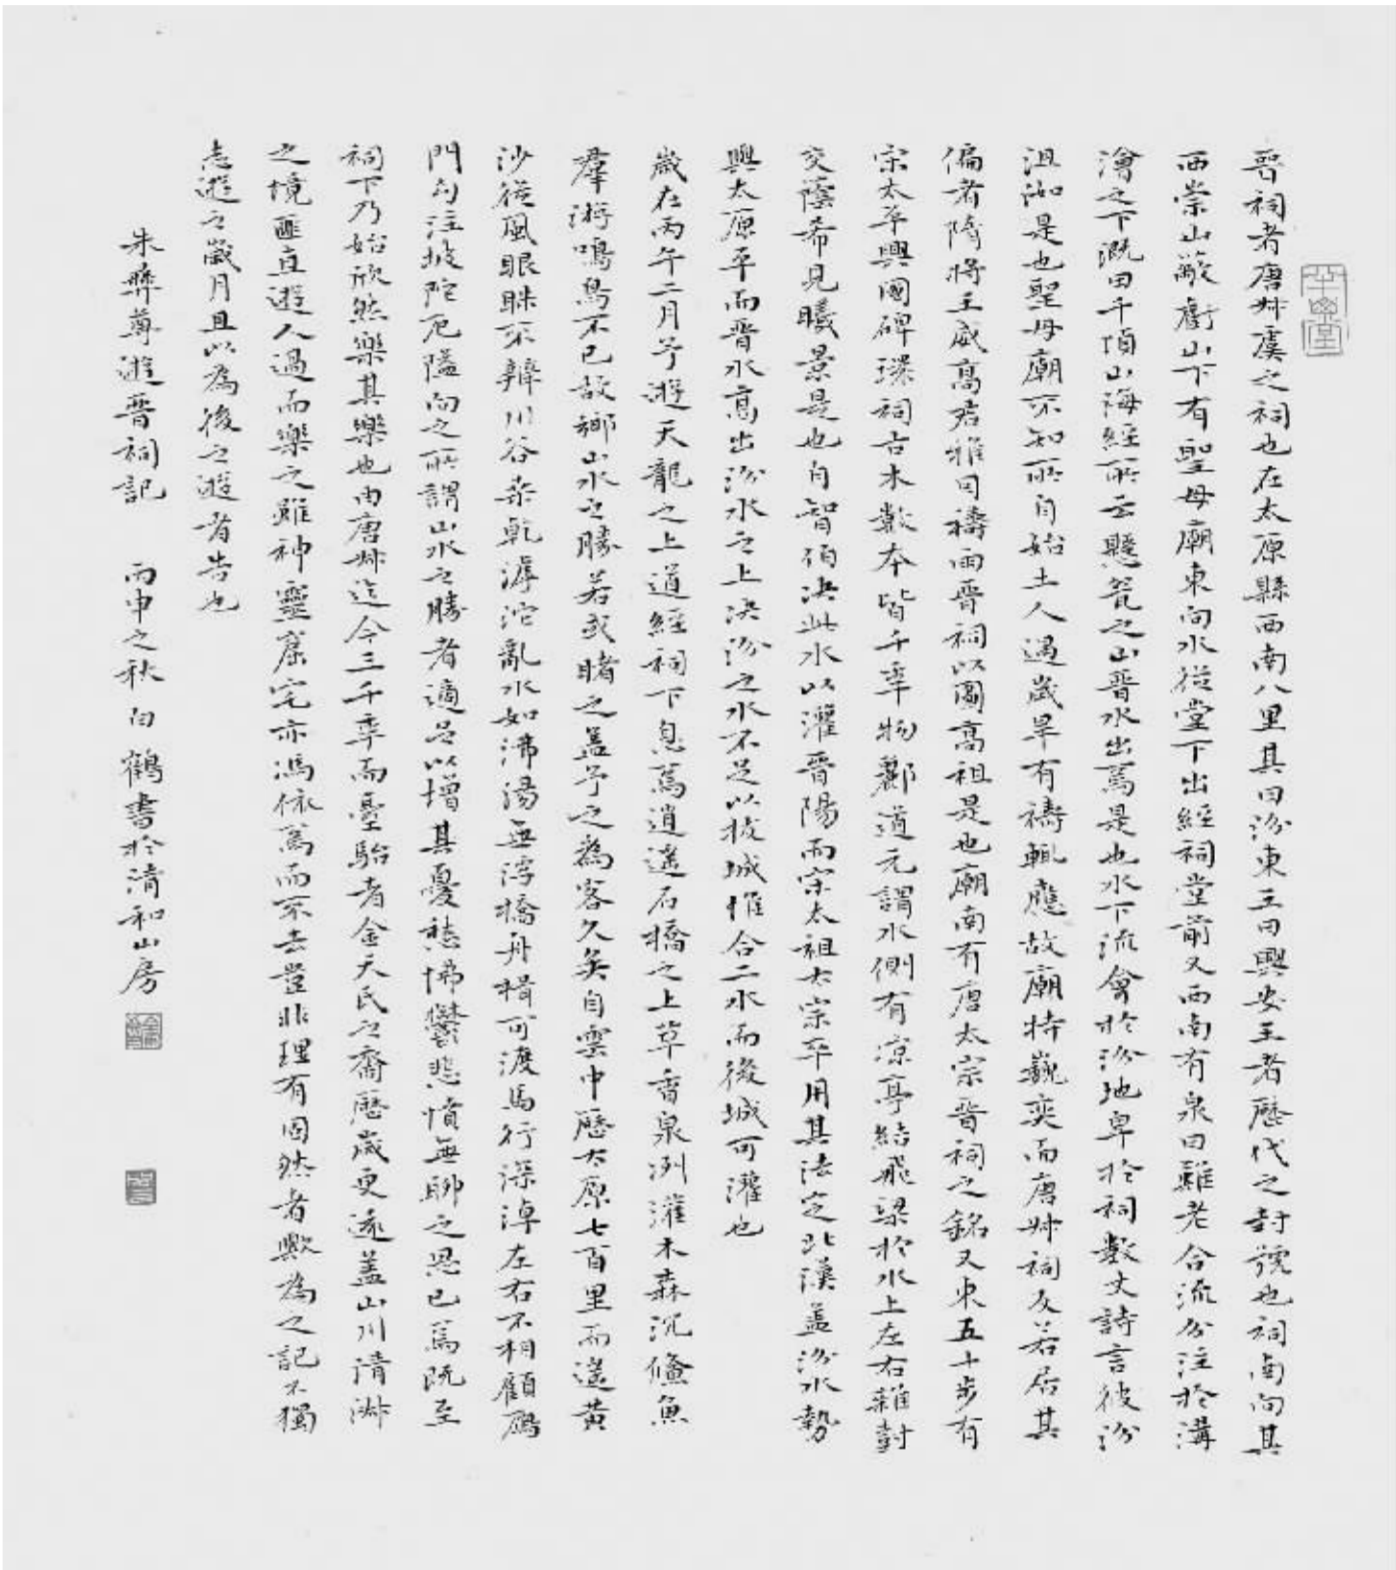 晋祠者唐叔虞之祠也在太原縣西南八里其曰汾東王曰興安王者歷代之封號也祠南向其
西崇山蔽虧山下有聖母廟東向水從堂下出經祠堂前又西南有泉曰難老合流分注於溝
澮之下溉田千頃山海經所云懸瓮之山晋水出焉是也水下流會於汾地卑於祠數丈詩言彼汾
沮洳是也聖母廟不知所自始土人遇歲旱有禱輒應故廟特巍奕而唐叔祠反若居其
偏者隋將王威高君雅因禱雨晋祠以圖高祖是也廟南有唐太宗晋祠之銘又東五十步有
宋太平興國碑環祠古木數本皆千年物酈道元謂水側有涼亭結飛梁於水上左右雜封
交蔭希見曦景是也自智伯決此水以灌晋陽而宋太祖太宗卒用其法定北漢蓋汾水勢
與太原平而晋水高出汾水之上決汾之水不足以拔城惟合二水而後城可灌也
歲在丙午二月予遊天龍之上道經祠下息焉逍遙石橋之上草香泉洌灌木森沉鯈魚
羣游鳴鳥不已故鄉山水之勝若或睹之蓋予之為客久矣自雲中歷太原七百里而遙黃
沙從風眼眯不辨川谷桑乾滹沱亂水如沸湯無浮橋舟楫可渡馬行深淖左右不相顧雁
門勾注坡陀厄隘向之所謂山水之勝者適足以增其憂愁怫鬱悲憤無聊之思已焉既至
祠下乃始欣然樂其樂也由唐叔迄今三千年而臺駘者金天氏之裔歷歲更遠蓋山川清淑
之境匪直遊人過而樂之雖神靈窟宅亦馮依焉而不去豈非理有固然者歟為之記不獨
志遊之歲月且以為後之遊者告也
朱彝尊遊晋祠記 丙申之秋白鶴書於清和山房